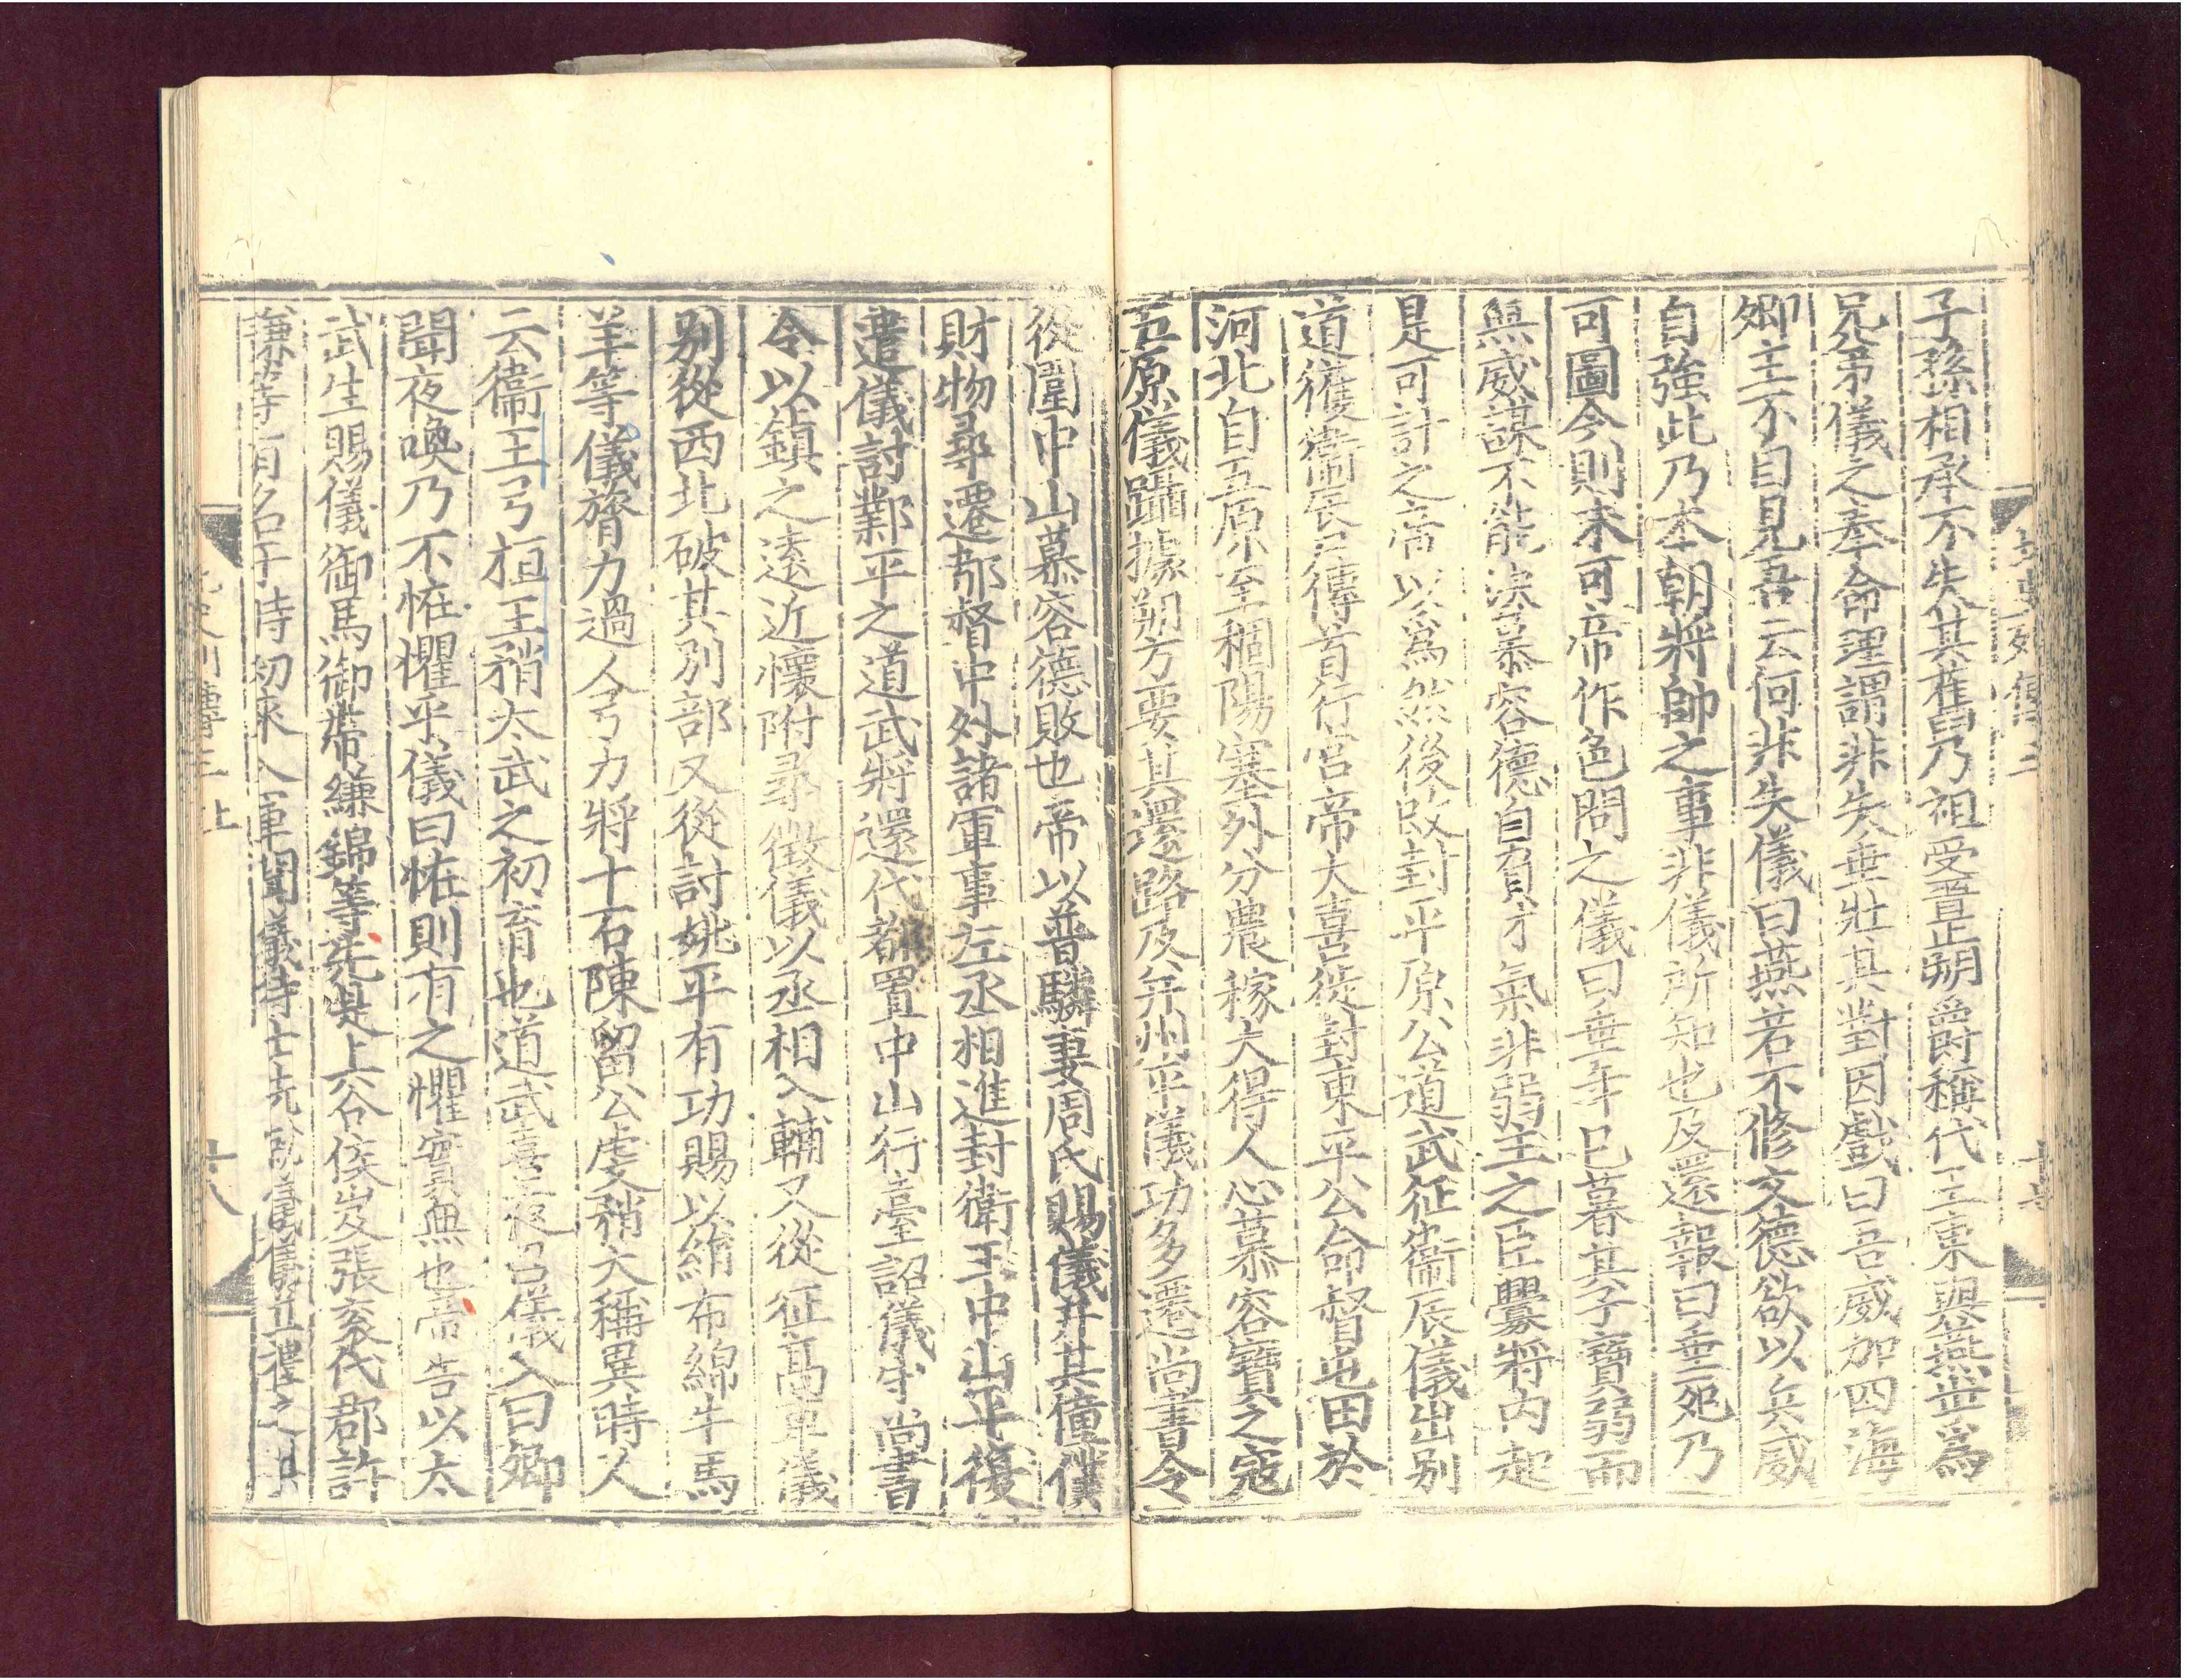 子孫相承不失其舊乃祖受晋正朔爵稱代王東與燕世爲
兄弟儀之奉命理謂非失垂壯其對因戲曰吾威加四海
卿主不自見吾云何非失儀曰燕若不修文德欲以兵威
自強此乃本朝將帥之事非儀所知也及還報曰垂死乃
可圖今則未可帝作色問之儀曰垂年已暮其子寶弱而
無威謀不能決慕容德自負才氣非弱主之臣釁將内起
是可計之帝以爲然後改封平原公道武征衞辰儀出别
道獲衞辰尸傳首行宮帝大喜徙封東平公命督屯田於
河北自五原至稒陽塞外分農稼大得人心慕容寶之寇
五原儀躡據朔方要其還路及并州平儀功多遷尚書令
從圍中山慕容德敗也帝以普驎妻周氏賜儀并其僮僕
財物尋遷都督中外諸軍事左丞相進封衛王中山平復
遣儀討鄴平之道武將還代都置中山行臺詔儀守尚書
令以鎮之遠近懷附尋徵儀以丞相入輔又從征高車儀
别從西北破其別部又從討姚平有功賜以絹布綿牛馬
羊等儀膂力過人弓力將十石陳留公虔矟大稱異時人
云衞王弓桓王矟太武之初育也道武喜夜召儀入曰卿
聞夜喚乃不恠懼乎儀曰恠則有之懼實無也帝告以太
武生賜儀御馬御帶縑錦等先是上谷侯岌張衮代郡許
謙等有名于時初來入軍聞儀待士先就儀儀並禮之共
北史列傳三
北史列傳三上
十八